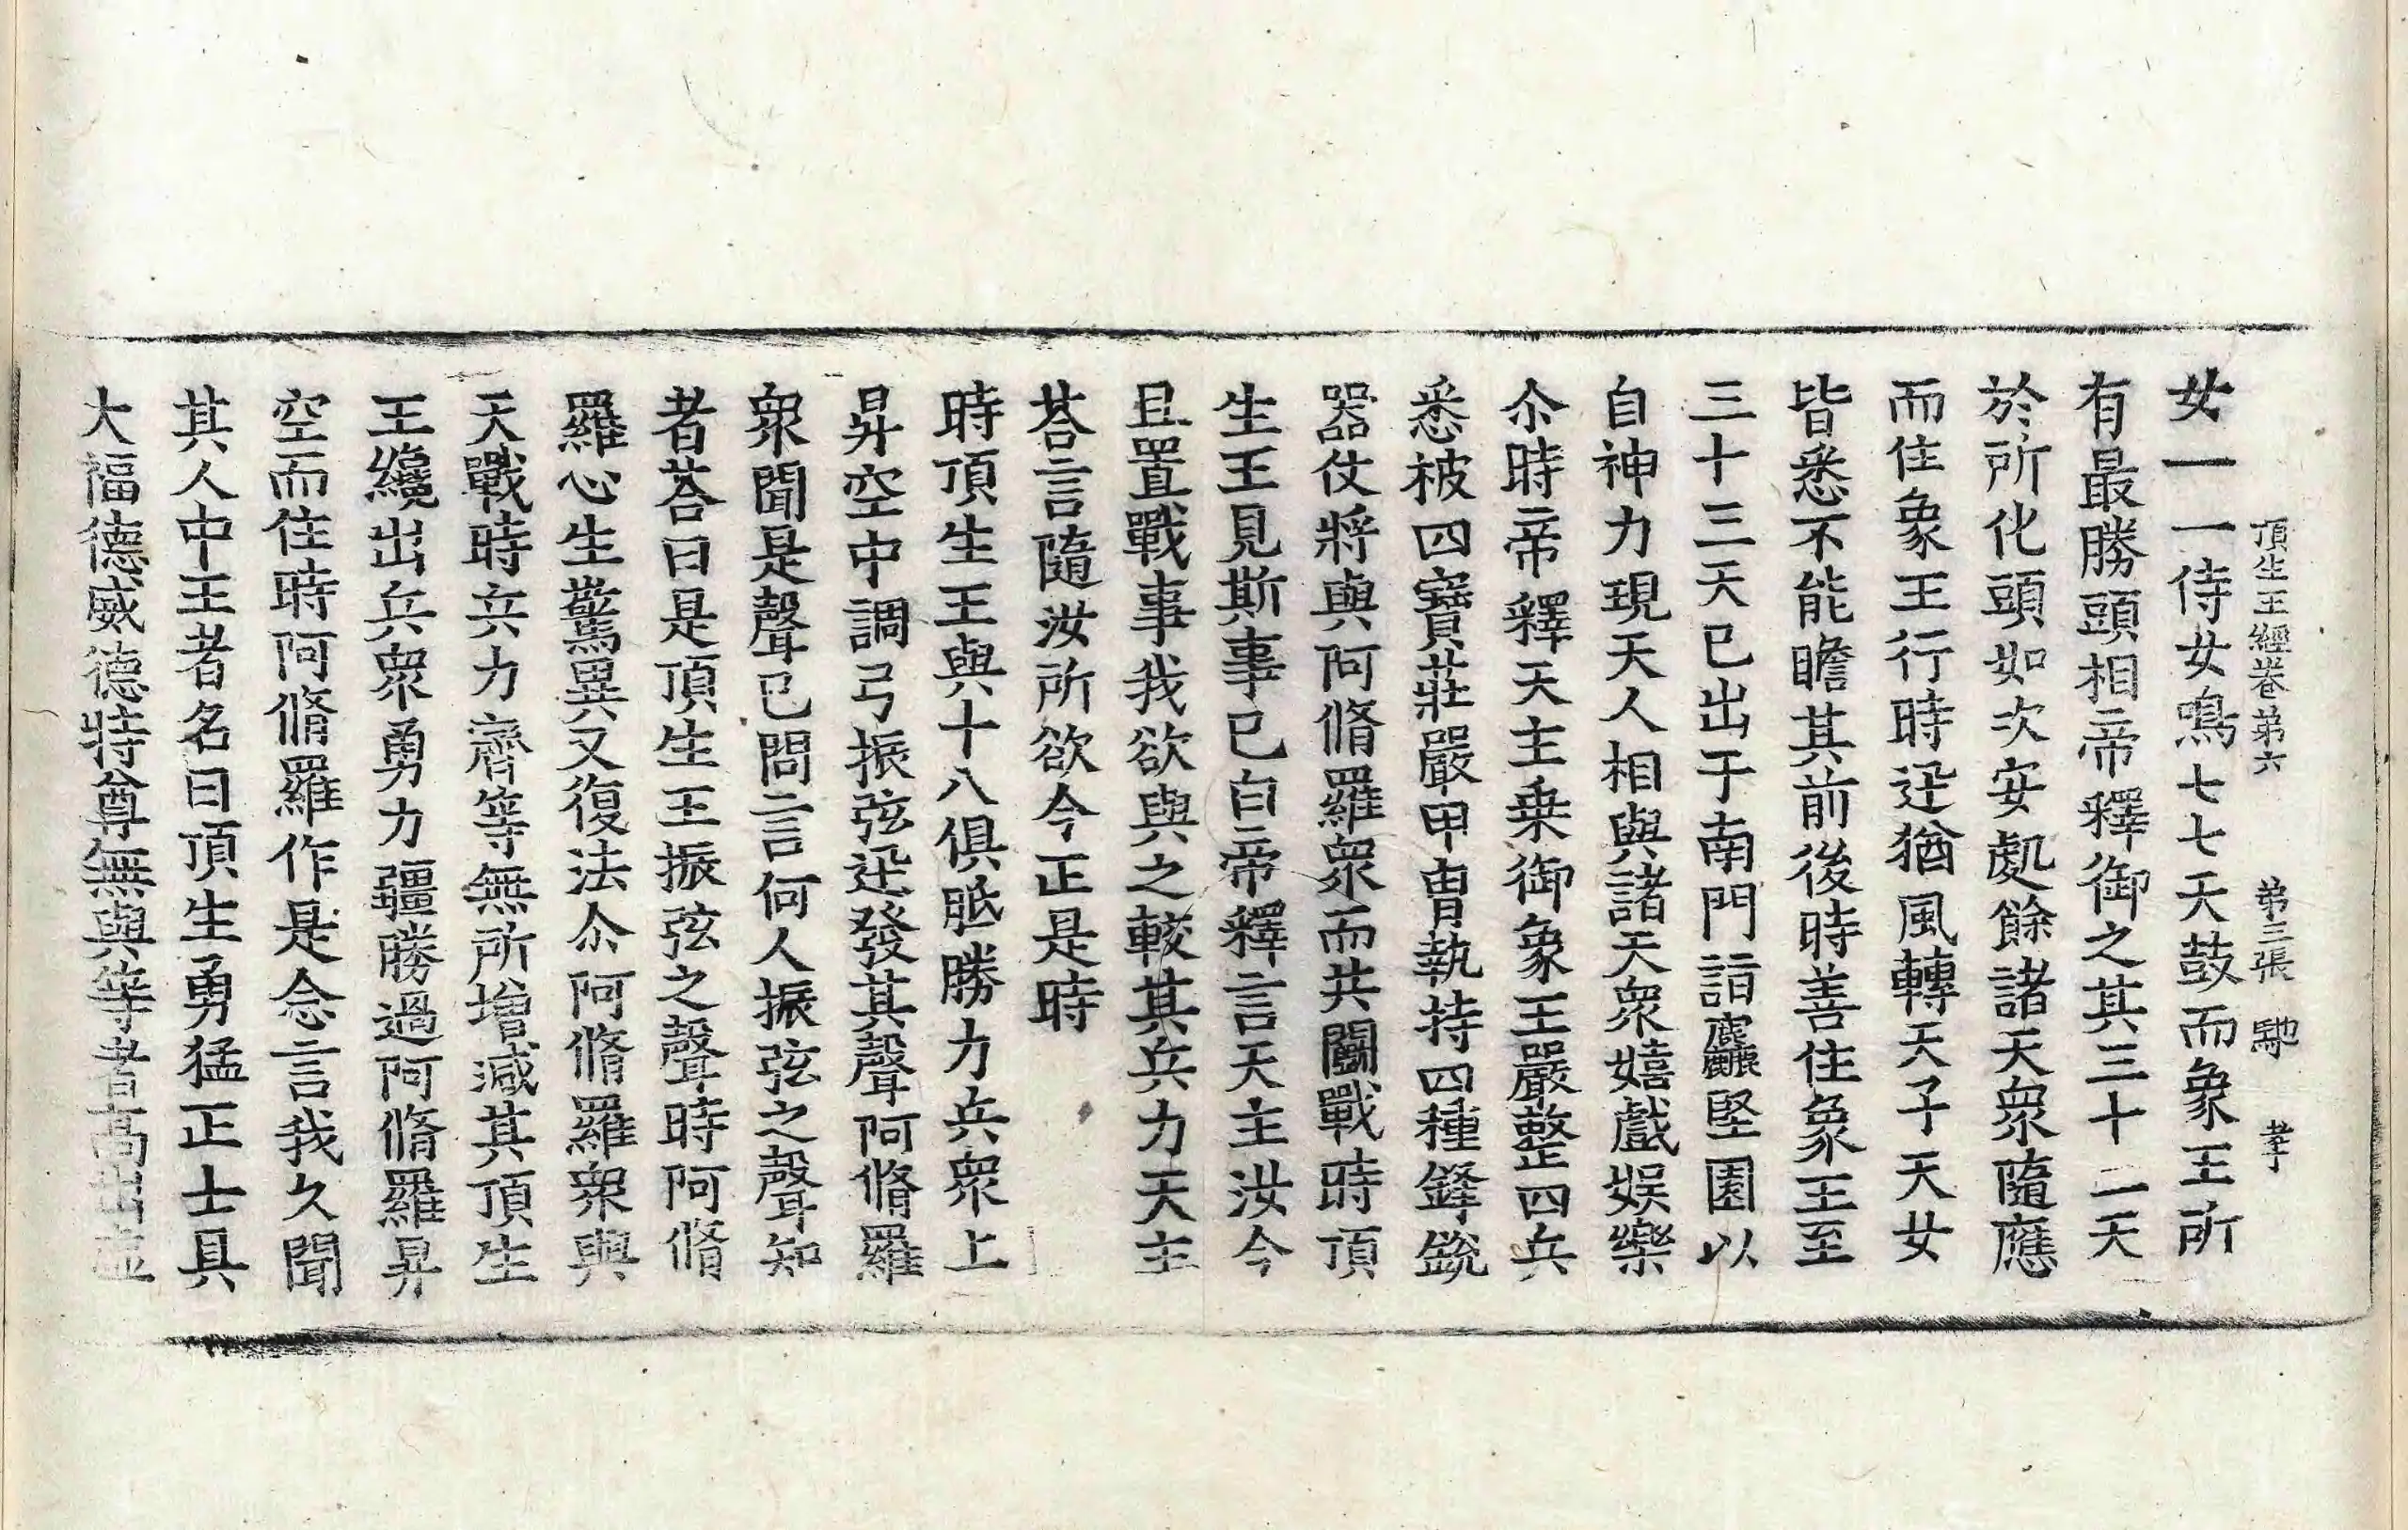 頂生王經卷第六　第三張　馳　孝
女一一侍女鳴七七天鼓而象王所
有最勝頭相帝釋御之其三十二天
於所化頭如次安處餘諸天衆隨應
而住象王行時迅猶風轉天子天女
皆悉不能瞻其前後時善住象王至
三十三天已出于南門詣麤堅園以
自神力現天人相與諸天衆嬉戲娛樂
尒時帝釋天主乗御象王嚴整四兵
悉被四寶莊嚴甲冑執持四種鋒銳
器仗將與阿脩羅衆而共鬭戰時頂
生王見斯事已白帝釋言天主汝今
且置戰事我欲與之較其兵力天主
荅言隨汝所欲今正是時
時頂生王與十八俱胝勝力兵衆上
昇空中調弓振弦迅發其聲阿脩羅
衆聞是聲已問言何人振弦之聲知
者荅曰是頂生王振弦之聲時阿脩
羅心生驚異又復法尒阿脩羅衆與
天戰時兵力齊等無所增減其頂生
王纔出兵衆勇力疆勝過阿脩羅昇
空而住時阿脩羅作是念言我久聞
其人中王者名曰頂生勇猛正士具
大福德威德特尊無與等者高出虛